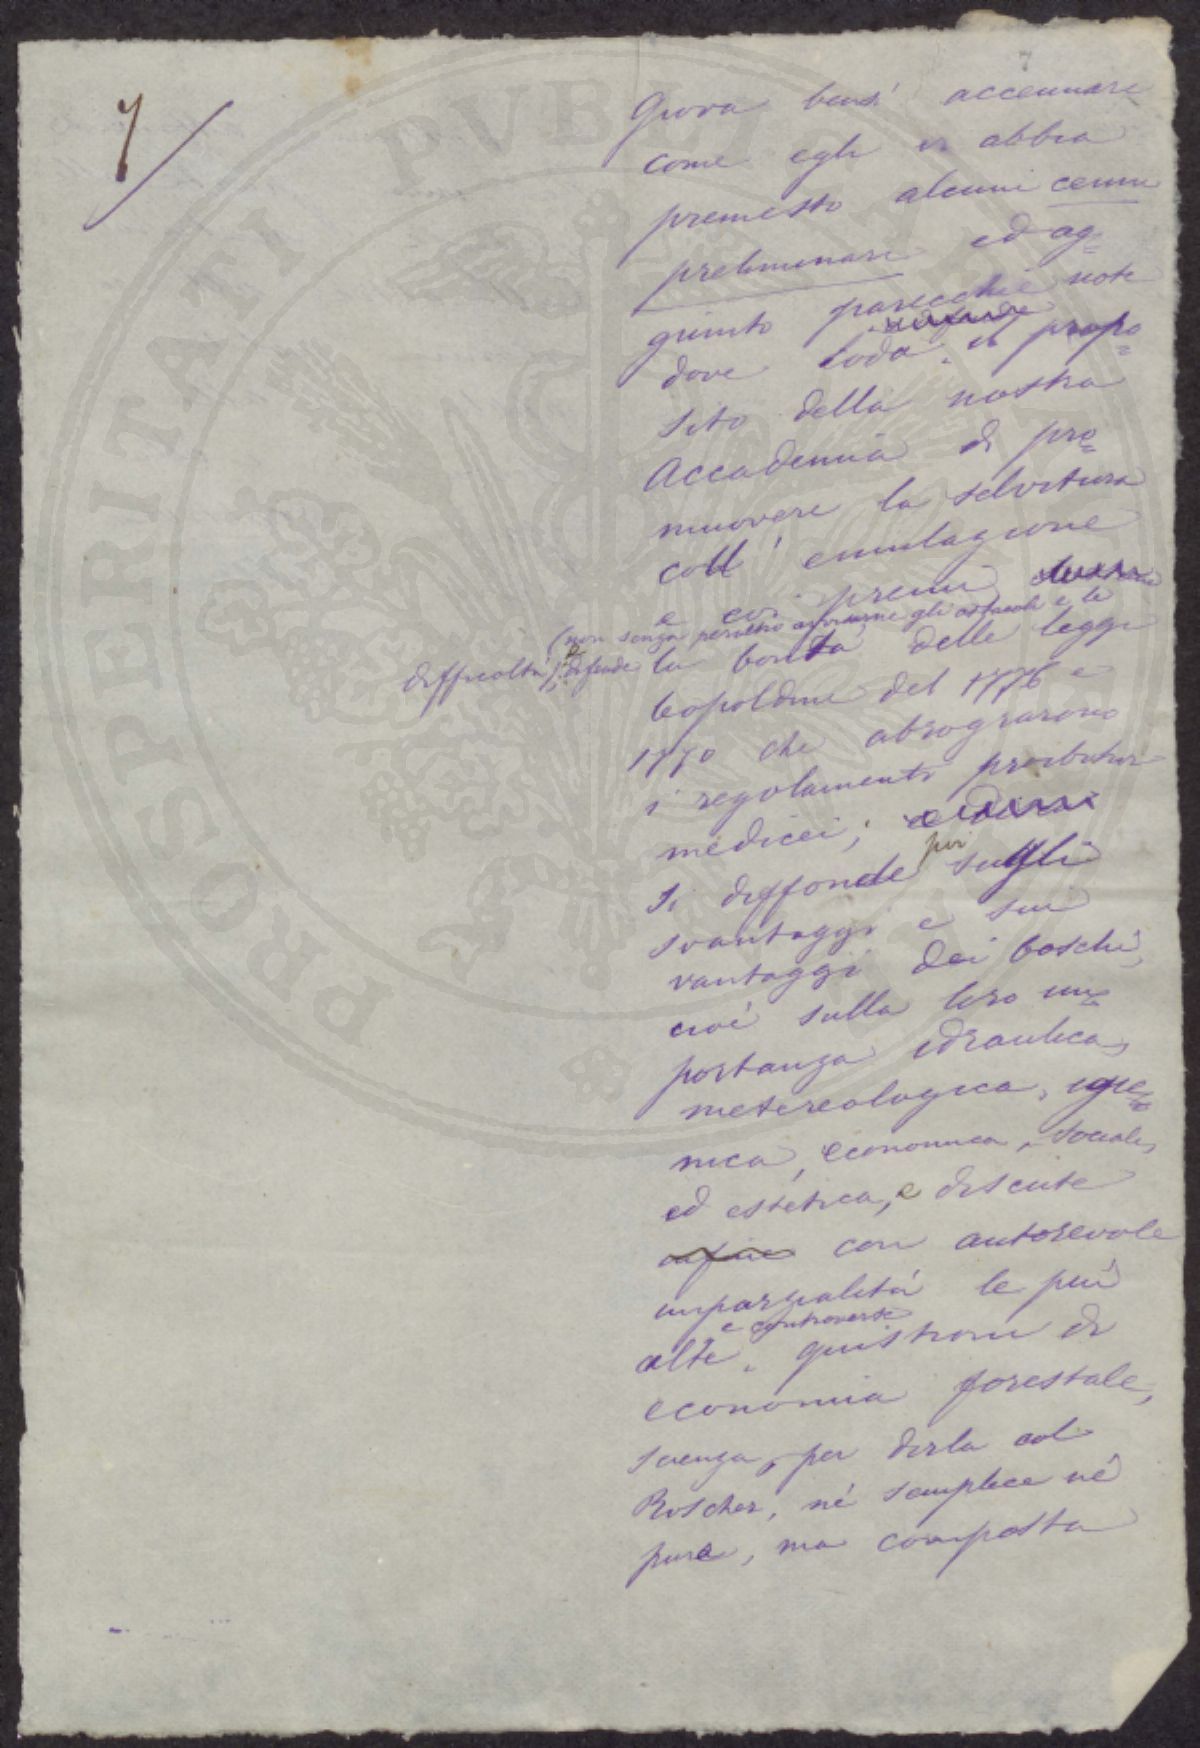 7
7
Giova bensì accennare
come egli vi abbia
premesto alcuni cenni
preliminari ed ag=
giunto parecchie note
dove loda il propo=
sito della nostra
Accademia di pro=
muovere la selvicoltura
coll'emulazione
e coi premi
(non senza peraltro avvertirne gli ostacoli e le
difficoltà); difende la bontà delle leggi
leopoldine del 1776 e
1780 che abrograrono
i regolamenti proibitivi
medicei;
si diffonde poi sugli
svantaggi e sui
vantaggi dei boschi,
cioè sulla loro im=
portanza idraulica,
metereologica, igie=
nica, economica, sociale,
ed estetica, e discute
infine con autorevole
imparzialità le più
alte e controverse quistioni di
economia forestale,
scienza, per dirla col
Roscher, nè semplice nè
pura, ma composta
PROSPERITATI PVBLICAE